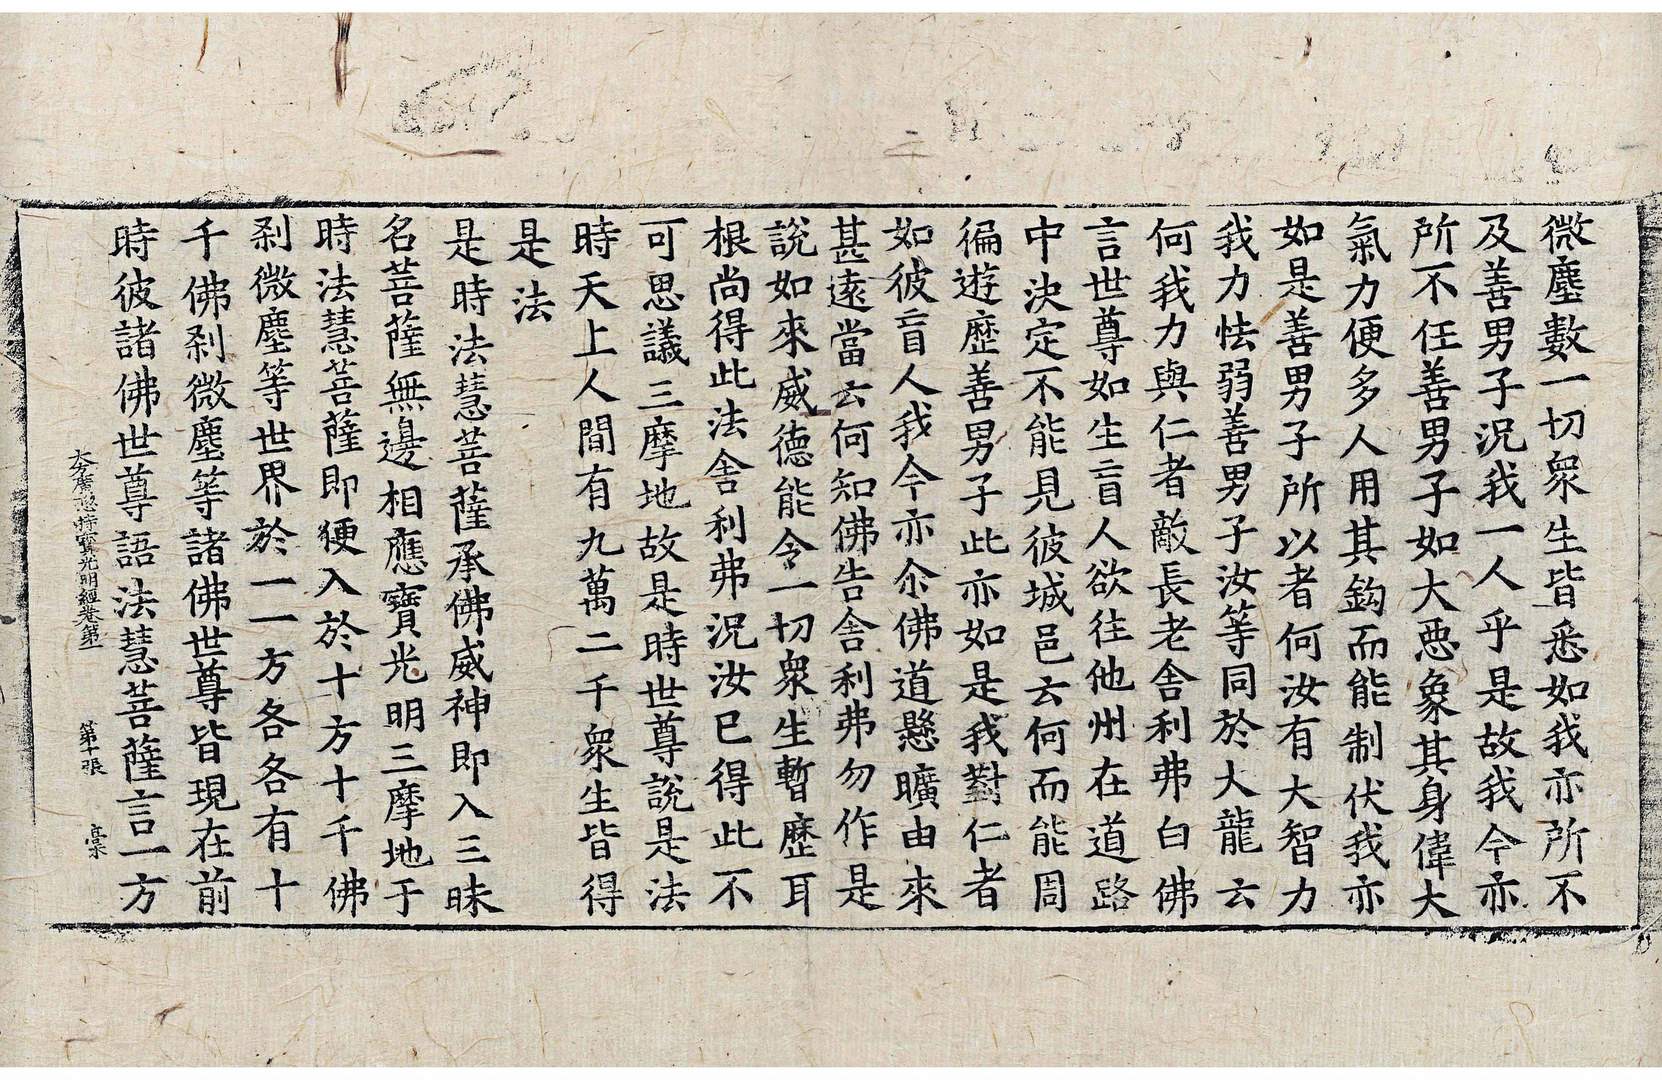 微塵數一切衆生皆悉如我亦所不
及善男子況我一人乎是故我今亦
所不任善男子如大惡象其身偉大
氣力便多人用其鈎而能制伏我亦
如是善男子所以者何汝有大智力
我力怯弱善男子汝等同於大龍云
何我力與仁者敵長老舍利弗白佛
言世尊如生盲人欲往他州在道路
中決定不能見彼城邑云何而能周
徧遊歷善男子此亦如是我對仁者
如彼盲人我今亦尒佛道懸曠由來
甚遠當云何知佛告舍利弗勿作是
說如來威德能令一切衆生暫歷耳
根尚得此法舍利弗況汝已得此不
可思議三摩地故是時世尊說是法
時天上人間有九萬二千衆生皆得
是法
是時法慧菩薩承佛威神即入三昧
名菩薩無邊相應寶光明三摩地于
時法慧菩薩即便入於十方十千佛
剎微塵等世界於一一方各各有十
千佛剎微塵等諸佛世尊皆現在前
時彼諸佛世尊語法慧菩薩言一方
大方廣惣持寶光明經卷第二 第十張 槀
二